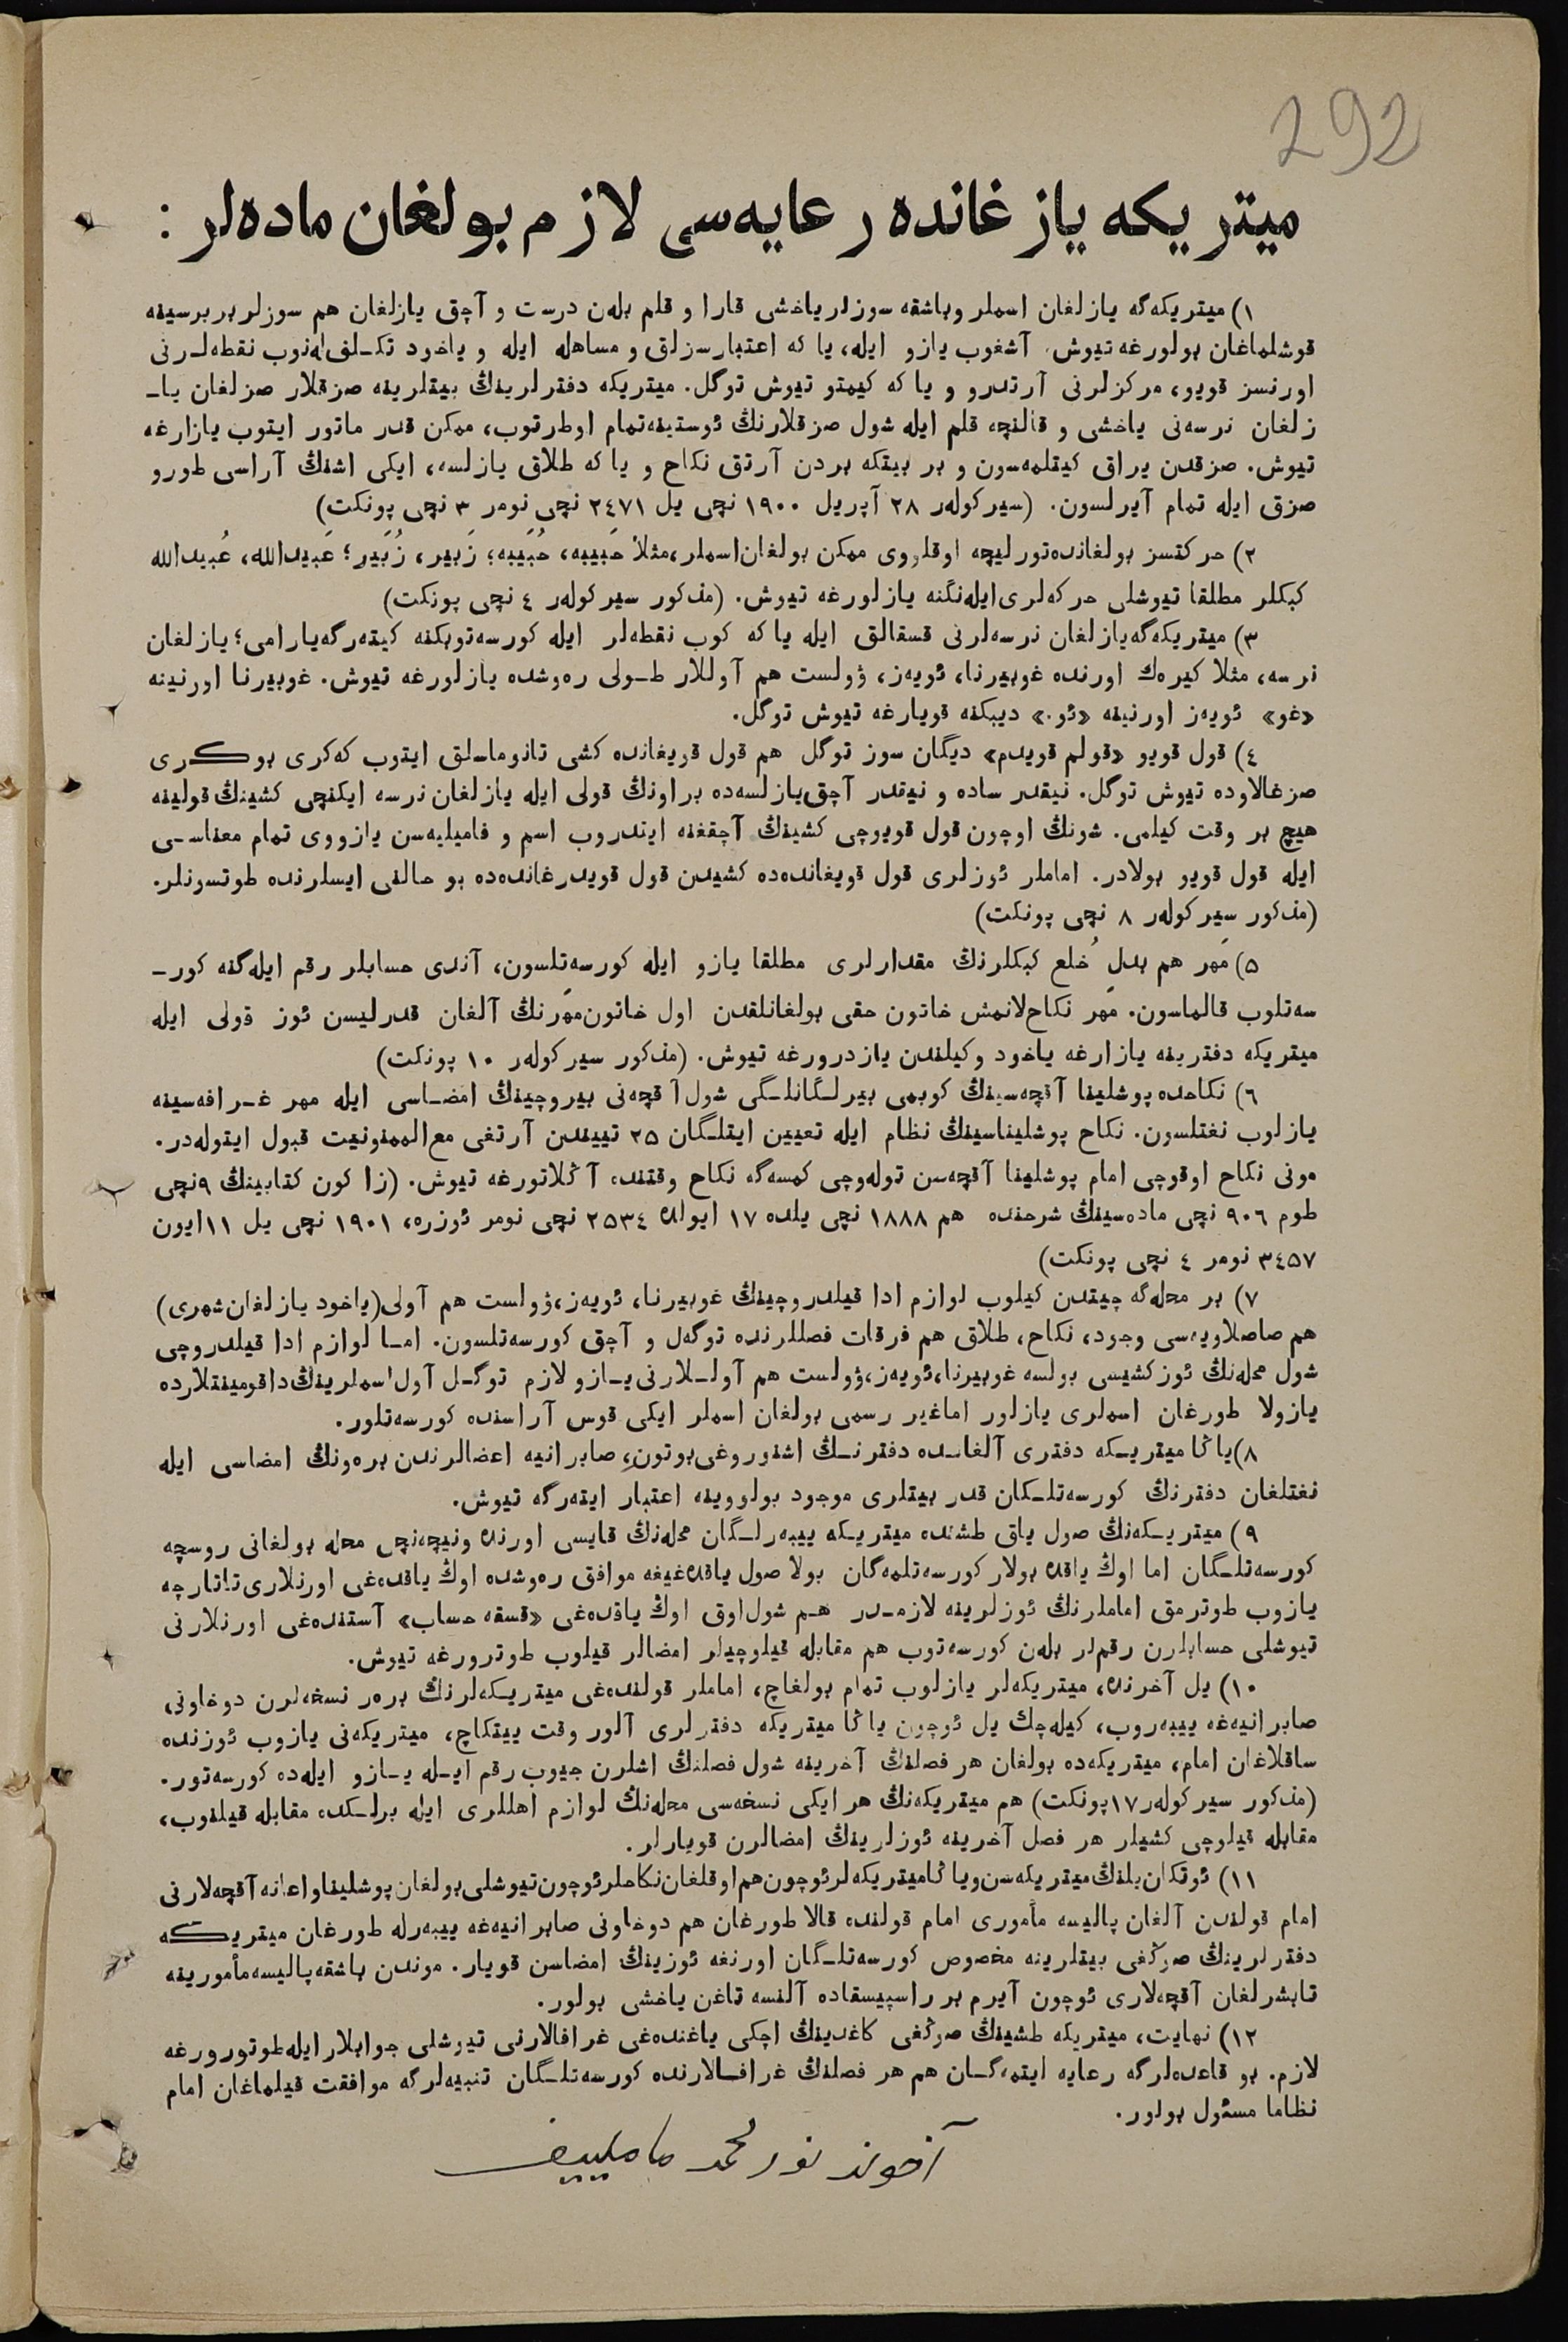 292
ميتريكه يازغانده رعايه‌سى لازم بولغان ماده‌لر :
١) ميتريكه‌گه يازلغان اسملر وباشقه سوزلر ياخشى قارا و قلم بله‌ن درست و آچق يازلغان هم سوزلر بربرسينه
قوشلماغان بولورغه تيوش. آشغوب يازو ايله، يا كه اعتبارسزلق و مساهله ايله و ياخود تكلف‌له‌نوب نقطه‌لرنى
اورنسز قويو، مركزلرنى آرتدرو و يا كه كيمتو تيوش توگل. ميتريكه دفترلرينڭ بيتلرينه صزقلار صزلغان يا-
زلغان نرسه‌نى ياخشى و قالنچه قلم ايله شول صزقلارنڭ ئوستينه‌تمام اوطرتوب، ممكن قدر ماتور ايتوب يازارغه
تيوش. صزقدن يراق كيتلمه‌سون و بر بيتكه بردن آرتق نكاح و يا كه طلاق يازلسه، ايكى اشنڭ آراسى طورو
صزق ايله تمام آيرلسون. (سيركولەر ٢٨ آپريل ١٩٠٠ نچى يل ٢٤٧١ نچى نومر ٣ نچى پونكت)
٢) حركتسز بولغانده‌تورليچه اوقلووى ممكن بولغان‌اسملر، مثلا حَبيبه، حُبَيبه؛ زَبير، زُبَير؛ عَبيدالله، عُبيدالله
كبكلر مطلقا تيوشلى حركه‌لرى‌ايله‌نگنه يازلورغه تيوش. (مذكور سيركولەر ٤ نچى پونكت)
٣) ميتريكه‌گه‌يازلغان نرسه‌لرنى قسقالق ايله يا كه كوب نقطه‌لر ايله كورسه‌توبكنه كيته‌رگه‌يارامى؛ يازلغان
نرسه، مثلا كيره‌ك اورنده غوبيرنا، ئويەز، ۋولست هم آوللار طولى ره‌وشده يازلورغه تيوش. غوبيرنا اورنينه
«غو» ئويەز اورنينه «ئو.» ديبكنه قويارغه تيوش توگل.
٤) قول قويو «قولم قويدم» ديگان سوز توگل هم قول قويغانده كشى تانوماسلق ايتوب كه‌كرى بوكرى
صزغالاوده تيوش توگل. نيقدر ساده و نيقدر آچق‌يازلسه‌ده براونڭ قولى ايله يازلغان نرسه ايكنچى كشينڭ قولينه
هيچ بر وقت كيلمى. شونڭ اوچون قول قويوچى كشينڭ آچقغنه ايتدروب اسم و فاميليه‌سن يازووى تمام معناسى
ايله قول قويو بولادر. اماملر ئوزلرى قول قويغانده‌ده كشيدن قول قويدرغانده‌ده بو حالنى ايسلرنده طوتسونلر.
(مذكور سيركولەر ٨ نچى پونكت)
٥) مَهر هم بدلِ خُلع كبكلرنڭ مقدارلرى مطلقا يازو ايله كورسه‌تلسون، آندى حسابلر رقم ايله‌گنه كور-
سه‌تلوب قالماسون. مَهر نكاح‌لانمش خاتون حقى بولغانلقدن اول خاتون‌مَهرنڭ آلغان قدرليسن ئوز قولى ايله
ميتريكه دفترينه يازارغه ياخود وكيلندن يازدرورغه تيوش. (مذكور سيركولەر ١٠ پونكت)
٦) نكاحده پوشلينا آقچه‌سينڭ كوبمى بيرلگانلگى شول آقچه‌نى بيروچينڭ امضاسى ايله مهر غرافه‌سينه
يازلوب نغتلسون. نكاح پوشليناسينڭ نظام ايله تعيين ايتلگان ٢٥ تييندن آرتغى مع‌الممنونيت قبول ايتوله‌در.
مونى نكاح اوقوچى امام پوشلينا آقچه‌سن توله‌وچى كمسه‌گه نكاح وقتنده آڭلاتورغه تيوش. (زاكون كتابينڭ ٩نچى
طوم ٩٠٦ نچى ماده‌سينڭ شرحنده هم ١٨٨٨ نچى يلده ١٧ ايولده ٢٥٣٤ نچى نومر ئوزره، ١٩٠١ نچى يل ١١ايون
٣٤٥٧ نومر ٤ نچى پونكت)
٧) بر محله‌گه چيتدن كيلوب لوازم ادا قيلدروچينڭ غوبيرنا، ئويەز، ۋولست هم آولى(ياخود يازلغان‌شهرى)
هم صاصلاويه‌سى وجود، نكاح، طلاق هم فرقات فصللرنده توگه‌ل و آچق كورسه‌تلسون. اما لوازم ادا قيلدروچى
شول محله‌نڭ ئوز كشيسى بولسه غوبيرنا، ئويەز، ۋولست هم آوللارنى يازو لازم توگل آول‌اسملرينڭ‌داقومينتلارده
يازولا طورغان اسملرى يازلور اماغير رسمى بولغان اسملر ايكى قوس آراسنده كورسه‌تلور.
٨)ياڭا ميتريكه دفترى آلغانده دفترنڭ اشنوروغى‌بوتون، صابرانيه اعضالرندن بره‌ونڭ امضاسى ايله
نغتلغان دفترنڭ كورسه‌تلگان قدر بيتلرى موجود بولووينه اعتبار ايته‌رگه تيوش.
٩) ميتريكه‌نڭ صول ياق طشنده ميتريكه ييبه‌رلگان محله‌نڭ قايسى اورنده ونيچه‌نچى محله بولغانى روسچه
كورسه‌تلگان اما اوڭ ياقده بولار كورسه‌تلمه‌گان بولا صول ياقده‌غيغه موافق ره‌وشده اوڭ ياقده‌غى اورنلارى‌تاتارچه
يازوب طوترمق اماملرنڭ ئوزلرينه لازمدر هم شول‌اوق اوڭ ياقده‌غى «قسقه حساب» آستنده‌غى اورنلارنى
تيوشلى حسابلرن رقم‌لر بله‌ن كورسه‌توب هم مقابله قيلوچيلر امضالر قيلوب طوترورغه تيوش.
١٠) يل آخرنده، ميتريكه‌لر يازلوب تمام بولغاچ، اماملر قولنده‌غى ميتريكه‌لرنڭ بره‌ر نسخه‌لرن دوخاونى
صابرانيه‌غه ييبه‌روب، كيله‌چك يل ئوچون ياڭا ميتريكه دفترلرى آلور وقت ييتكاچ، ميتريكه‌نى يازوب ئوزنده
ساقلاغان امام، ميتريكه‌ده بولغان هر فصلنڭ آخرينه شول فصلنڭ اشلرن جيوب رقم ايله يازو ايله‌ده كورسه‌تور.
(مذكور سيركولەر١٧پونكت) هم ميتريكه‌نڭ هر ايكى نسخه‌سى محله‌نڭ لوازم اهللرى ايله برلكده مقابله قيلنوب،
مقابله قيلوچى كشيلر هر فصل آخرينه ئوزلرينڭ امضالرن قويارلر.
١١) ئوتكان‌يلنڭ‌ميتريكه‌سن‌وياڭاميتريكه‌لرئوچون‌هم‌اوقلغان‌نكاحلرئوچون‌تيوشلى‌بولغان‌پوشليناواعانه‌آقچه‌لارنى
امام قولندن آلغان پاليسه مأمورى امام قولنده قالا طورغان هم دوخاونى صابرانيه‌غه ييبه‌رله طورغان ميتريكه
دفترلرينڭ صوڭغى بيتلرينه مخصوص كورسه‌تلگان اورنغه ئوزينڭ امضاسن قويار. موندن باشقه‌پاليسه‌مأمورينه
تابشرلغان آقچه‌لارى ئوچون آيرم بر راسپيسقاده آلنسه تاغن ياخشى بولور.
١٢) نهايت، ميتريكه طشينڭ صوڭغى كاغدينڭ اچكى ياغنده‌غى غرافالارنى تيوشلى جوابلارايله‌طوتورورغه
لازم. بو قاعده‌لرگه رعايه ايتمه‌گان هم هر فصلنڭ غرافالارنده كورسه‌تلگان تنبيه‌لرگه موافقت قيلماغان امام
نظاما مسئول بولور.
آخوند نورمحمد ماملييف